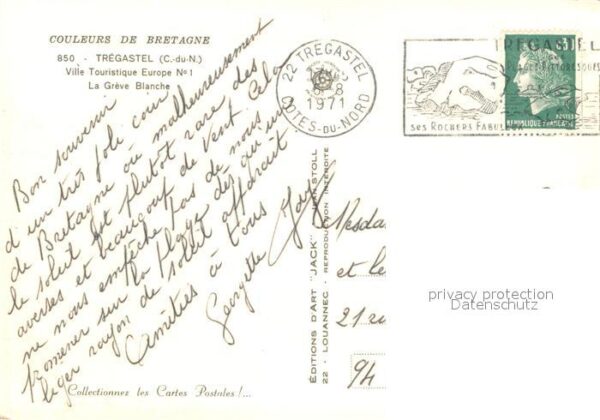 COULEURS DE BRETAGNE
850 - TRÉGASTEL (C.-du-N.)
Ville Touristique Europe No 1
La Grève Blanche
Bon souvenir
d'un très joli coin
de Bretagne où malheureusement
le soleil est plutôt rare des
averses et beaucoup de vent. Cela
ne nous empêche pas de nous
promener sur la plage dès qu'un
léger rayon de soleil apparaît.
Amitiés à tous
Georgette
Collectionnez les Cartes Postales !...
22 TRÉGASTEL
8
1971
CÔTES-DU-NORD
TRÉGASTEL
SES ROCHERS FABULEUX
POSTES
REPUBLIQUE FRANÇAISE
ÉDITIONS D'ART "JACK"
22 - LOUANNEC - REPRODUCTION INTERDITE
JEAN STOLL
Mesda
et le
21
94
privacy protection
Datenschutz